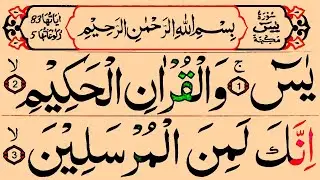 سُوْرَةُ يٰسٓ مَكِّيَّةٌ
بِسْمِ اللّٰهِ الرَّحْمٰنِ الرَّحِيْمِ
اٰيَاتُهَا 83
رُكُوْعَاتُهَا 5
يٰسٓ ۚ 1 وَالْقُرْاٰنِ الْحَكِيْمِ ۙ 2
اِنَّكَ لَمِنَ الْمُرْسَلِيْنَ ۙ 3